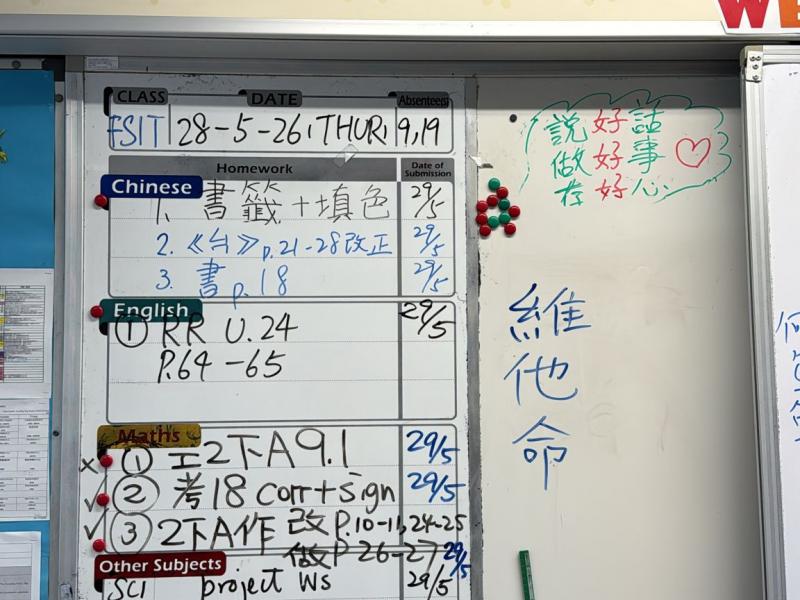 WE
CLASS DATE Absentee(s)
28-5-26, THUR, 9,19
Homework Date of Submission
Chinese
1. 書籤+填色 29/5
2.《台》p.21-28改正 29/5
3. 書 p.18 29/5
English
① RR U.24 29/5
P.64-65
Maths
× ① 工2下A9.1 29/5
✓ ② 考18 corr+sign 29/5
✓ ③ 2下A作 改 P.10-11,24-25
做P.26-27 29/5
Other Subjects
SCI project Ws 29/5
說好話
做好事
存好心
維
他
命